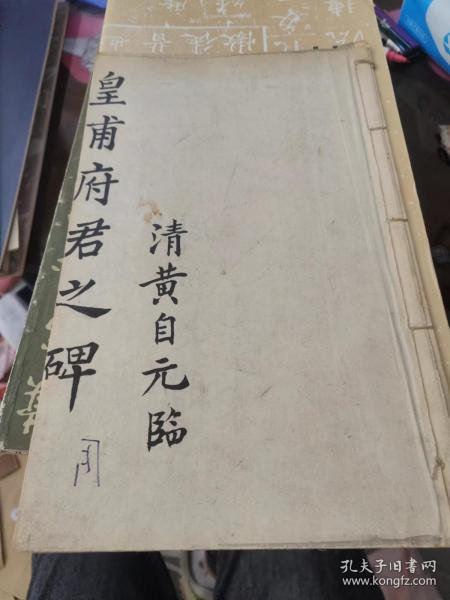 皇甫府君之碑
清黄自元臨
孔夫子旧书网
www.kongfz.com